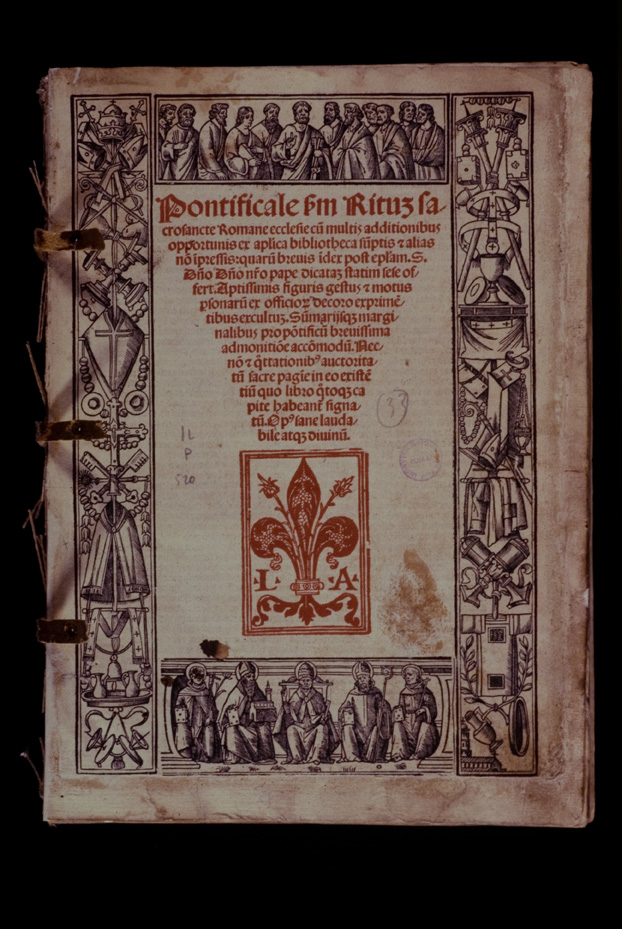 Pontificale ẜm Rituꝫ ſa⸗
croſancte Romane eccleſie cū multis additionibus
opportunis ex apl̃ica bibliotheca sūptis ⁊ alias
nō īpreſſis:quarū breuis īdex poſt epl̃am.S.
Dño Dño nr̃o pape dicataꝫ ſtatim ſeſe of⸗
fert.Aptiſſimis figuris geſtus ⁊ motus
ꝑſonarū ex officioꝝ decoro exprimē⸗
tibus excultuꝫ.Sūmarijſqꝫ margi⸗
nalibus pro pōtificū breuiſſima
admonitiōe accōmodū.Nec⸗
nō ⁊ q̄ttationibꝰ auctorita⸗
tū ſacre pagīe in eo exiſtē⸗
tiū quo libro q̄toqꝫ ca
pite habeant᷑ ſigna⸗
tū.Opꝰ ſane lauda⸗
bile atqꝫ diuinū.
33
IL
P
520
L A